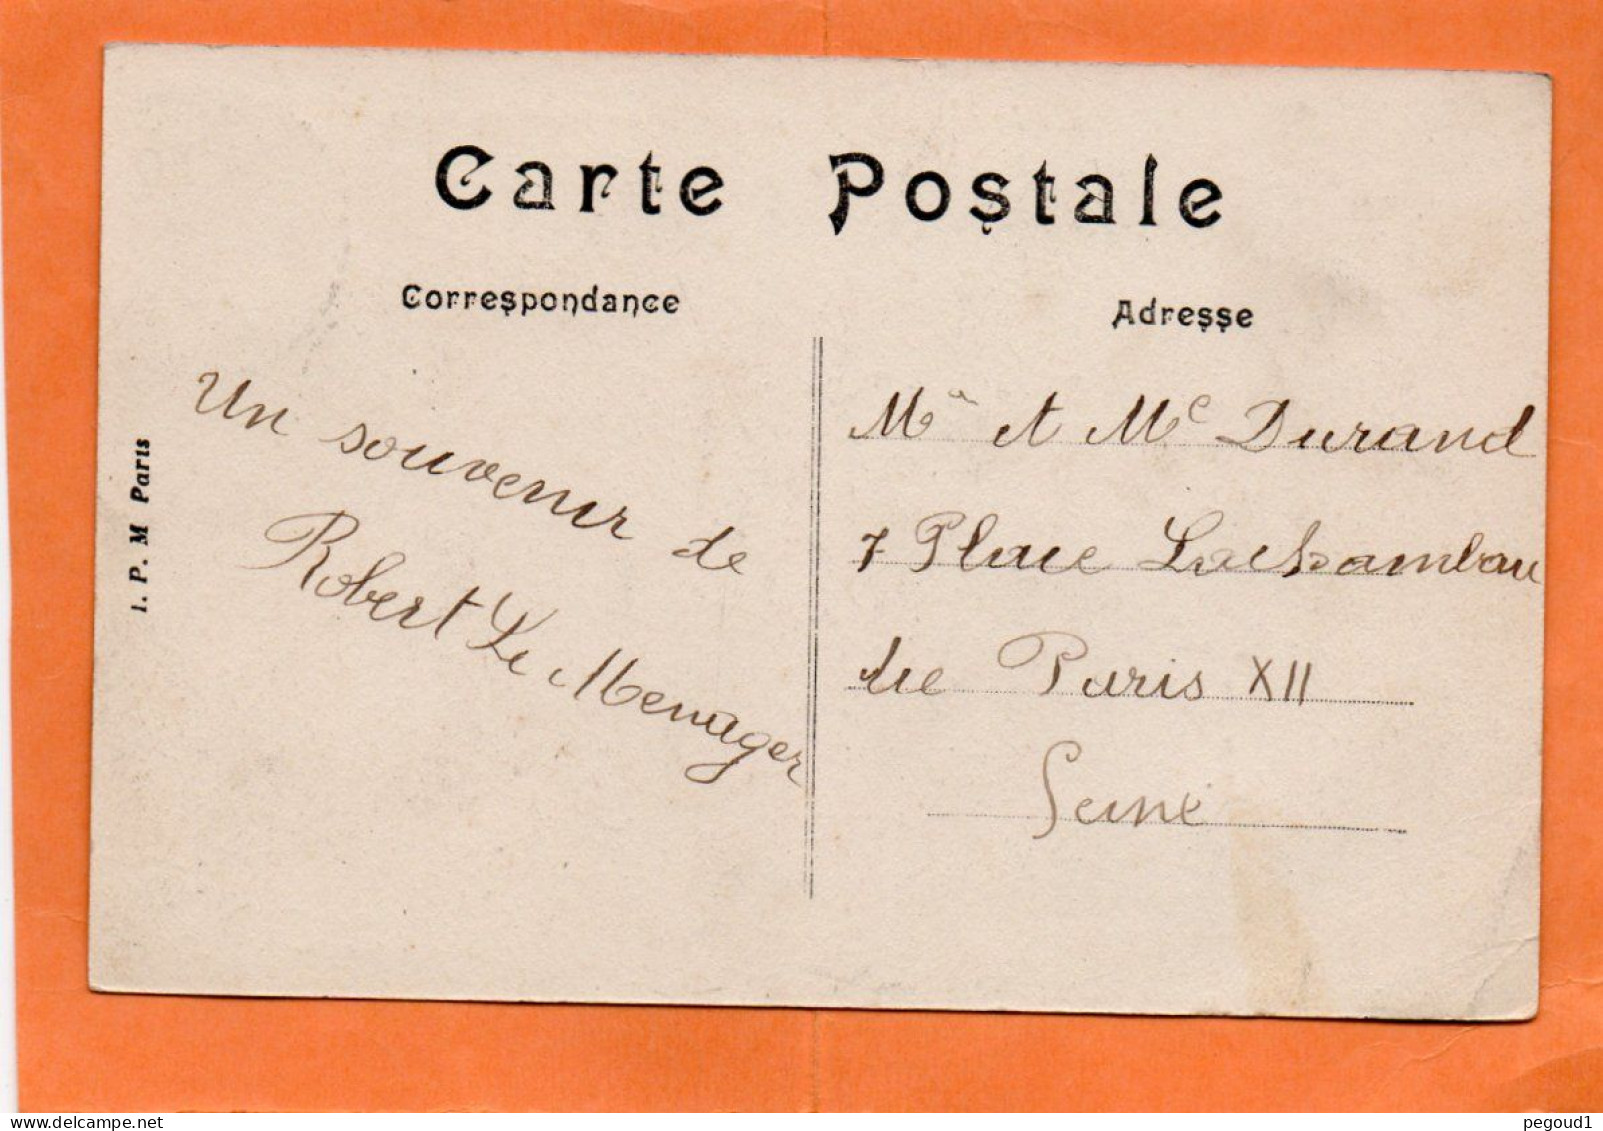 Carte Postale
Correspondance
Adresse
I. P. M Paris
Un souvenir de
Robert Le Menager
Mr et Me Durand
7 Place Lachambau
die Paris XII
Seine
delcampe.net
pegoud1